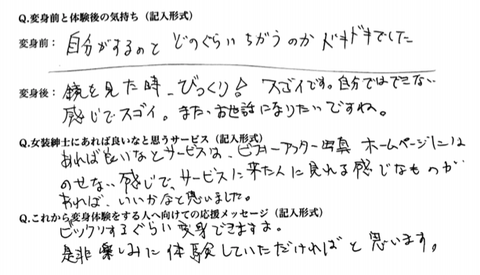 Q.変身前と体験後の気持ち（記入形式）
変身前： 自分がするのと どのぐらいちがうのか ドキドキでした
変身後： 鏡を見た時、びっくり！ スゴイです。自分ではできない
感じでスゴイ。また、お世話になりたいですね。
Q.女装紳士にあれば良いなと思うサービス（記入形式）
あれば良いなとサービスは、ビフォーアフター写真 ホームページには
のせない感じで、サービスに来た人に見れる感じなものが
あれば、いいかなと思いました。
Q.これから変身体験をする人へ向けての応援メッセージ（記入形式）
ビックリするぐらい変身できますよ。
是非楽しみに体験していただければと思います。